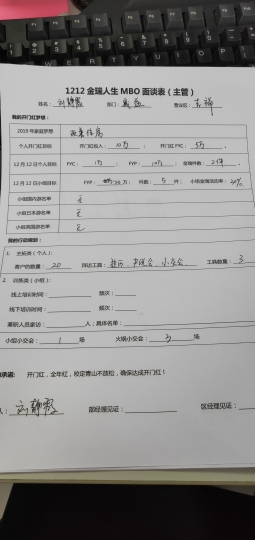 1212金瑞人生MBO面谈表（主管）
姓名：刘静霞 部门： 营业区：吉祥
我的开门红梦想：
2019年家庭梦想
个人开门红目标 开门红收入：10万； 开门红FYC：5万。
12月12日个人目标 FYC：1万 FYP：10万； 金瑞件数：2件。
12月12日小组目标 FYP：20万； 件数：5件； 小组金瑞活动率：20%
小组国内游名单 无
小组日本游名单 无
小组英国游名单 无
我的行动规划：
1. 主拓类（个人）：
客户约数量：20 拜访工具： 小交会 工具数量：3
2. 训练类（小组）：
线上培训时间： 频次：
线下培训时间： 频次：
兼职人员家访： 人；具体名单：
小组小交会：1场 火锅小交会：3场
承诺： 开门红，全年红，咬定青山不放松，确保达成开门红！
人：刘静霞 部经理见证： 区经理见证：